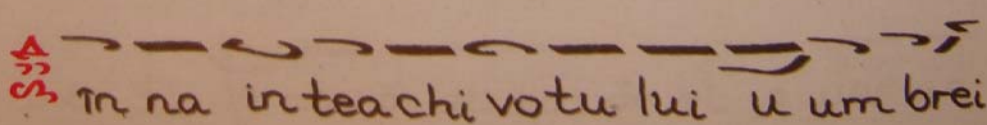 în na in tea chi vo tu lui u um brei